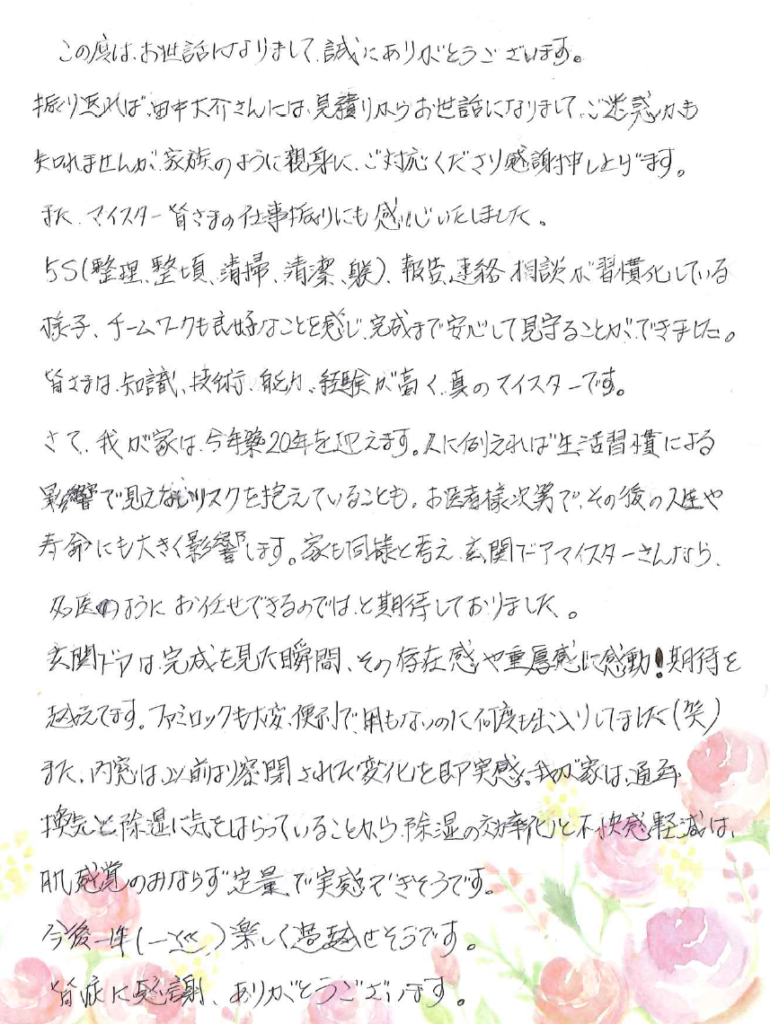 この度は、お世話になりまして、誠にありがとうございます。
振り返れば、田中大介さんには、見積りからお世話になりまして、ご迷惑かも
知れませんが、家族のように親身に、ご対応くださり感謝申し上げます。
また、マイスター皆さまの仕事振りにも感心いたしました。
5S(整理、整頓、清掃、清潔、躾)、報告、連絡、相談が習慣化している
様子、チームワークも良好なことを感じ、完成まで安心して見守ることができました。
皆さまは、知識、技術、能力、経験が高く、真のマイスターです。
さて、我が家は、今年築20年を迎えます。人に例えれば生活習慣による
影響で見えないリスクを抱えていることも。お医者様次第で、その後の人生や
寿命にも大きく影響します。家も同様と考え、玄関ドアマイスターさんなら、
名医のように お任せできるのでは、と期待しておりました。
玄関ドアは、完成を見た瞬間、その存在感や重厚感に感動!期待を
越えてます。ファミロックも大変、便利で、用もないのに何度も出入りしました(笑)
また、内窓は、以前より密閉された変化を即実感。我が家は、通年
換気と除湿に気をはらっていることから、除湿の効率化と不快感軽減は、
肌感覚のみならず定量で実感できそうです。
今後一年( )楽しく過せそうです。
皆様に感謝、ありがとうございます。